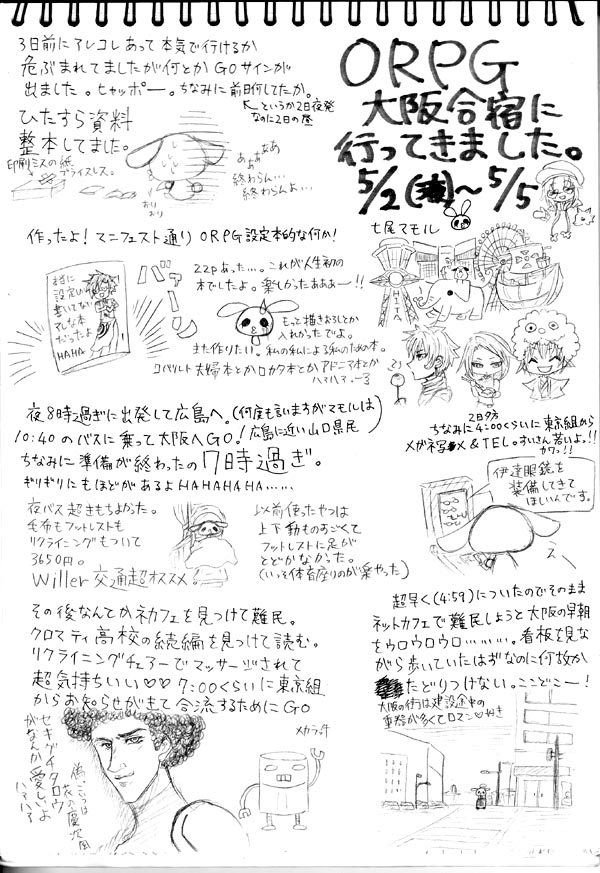 ORPG
大阪合宿に
行ってきました。
5/2(土)〜5/5
七尾マモル
3日前にアレコレあって本気で行けるか
危ぶまれてましたが何とかGOサインが
出ました。ヒャッポー。ちなみに前日何してたか。
というか2日夜発
なのに2日の昼
ひたすら資料
整本してました。
印刷ミスの紙
プライスレス。
おり
おり
あぁ
あぁぁ
終わらん…
終わらんよ…
作ったよ!マニフェスト通りORPG設定本的な何か!
特に
設定は
書いてない
アレな本
だったよ
HAHA
バァーン
22Pあった…。これが人生初の
本でしたよ。楽しかったあああー!!
もっと描きおろしとか
入れかったでよ。
また作りたい。私の私による私のための本。
コバルト夫婦本とかロカワ本とかアドニマ本とか
ハァハァ
夜8時過ぎに出発して広島へ。(何度も言いますがマモルは
広島に近い山口県民)
10:40のバスに乗って大阪へGO!
ちなみに準備が終わったの7時過ぎ。
ギリギリにもほどがあるよHAHAHAHA……
2日夕方
ちなみに4:00くらいに東京組から
メガネ写メ&TEL。すいさん若いよっ!!
カワっ!!
伊達眼鏡を
装備してきて
ほしいんです。
え
夜バス超きもちよかった。
毛布もフットレストも
リクライニングもついて
3650円。
Willer交通超オススメ
以前使ったやつは
上下動ものすごくて
フットレストに足が
とどかなかった。
(いっそ体育座りのが楽やった)
超早く(4:59)についたのでそのまま
ネットカフェで難民しようと大阪の早朝
をウロウロウロ………。看板を見な
がら歩いていたはずなのに何故か
たどりつけない。ここどこー!
大阪の街は建設途中の
重機が多くてロマン♡好き
その後なんとかネカフェを見つけて難民。
クロマティ高校の続編を見つけて読む。
リクライニングチェアーでマッサージされて
超気持ちいい♡♡7:00くらいに東京組
からお知らせがきて合流するためにGO
セキグチタロウ
がなんか愛しいよ
ハァハァ
メカラッチ